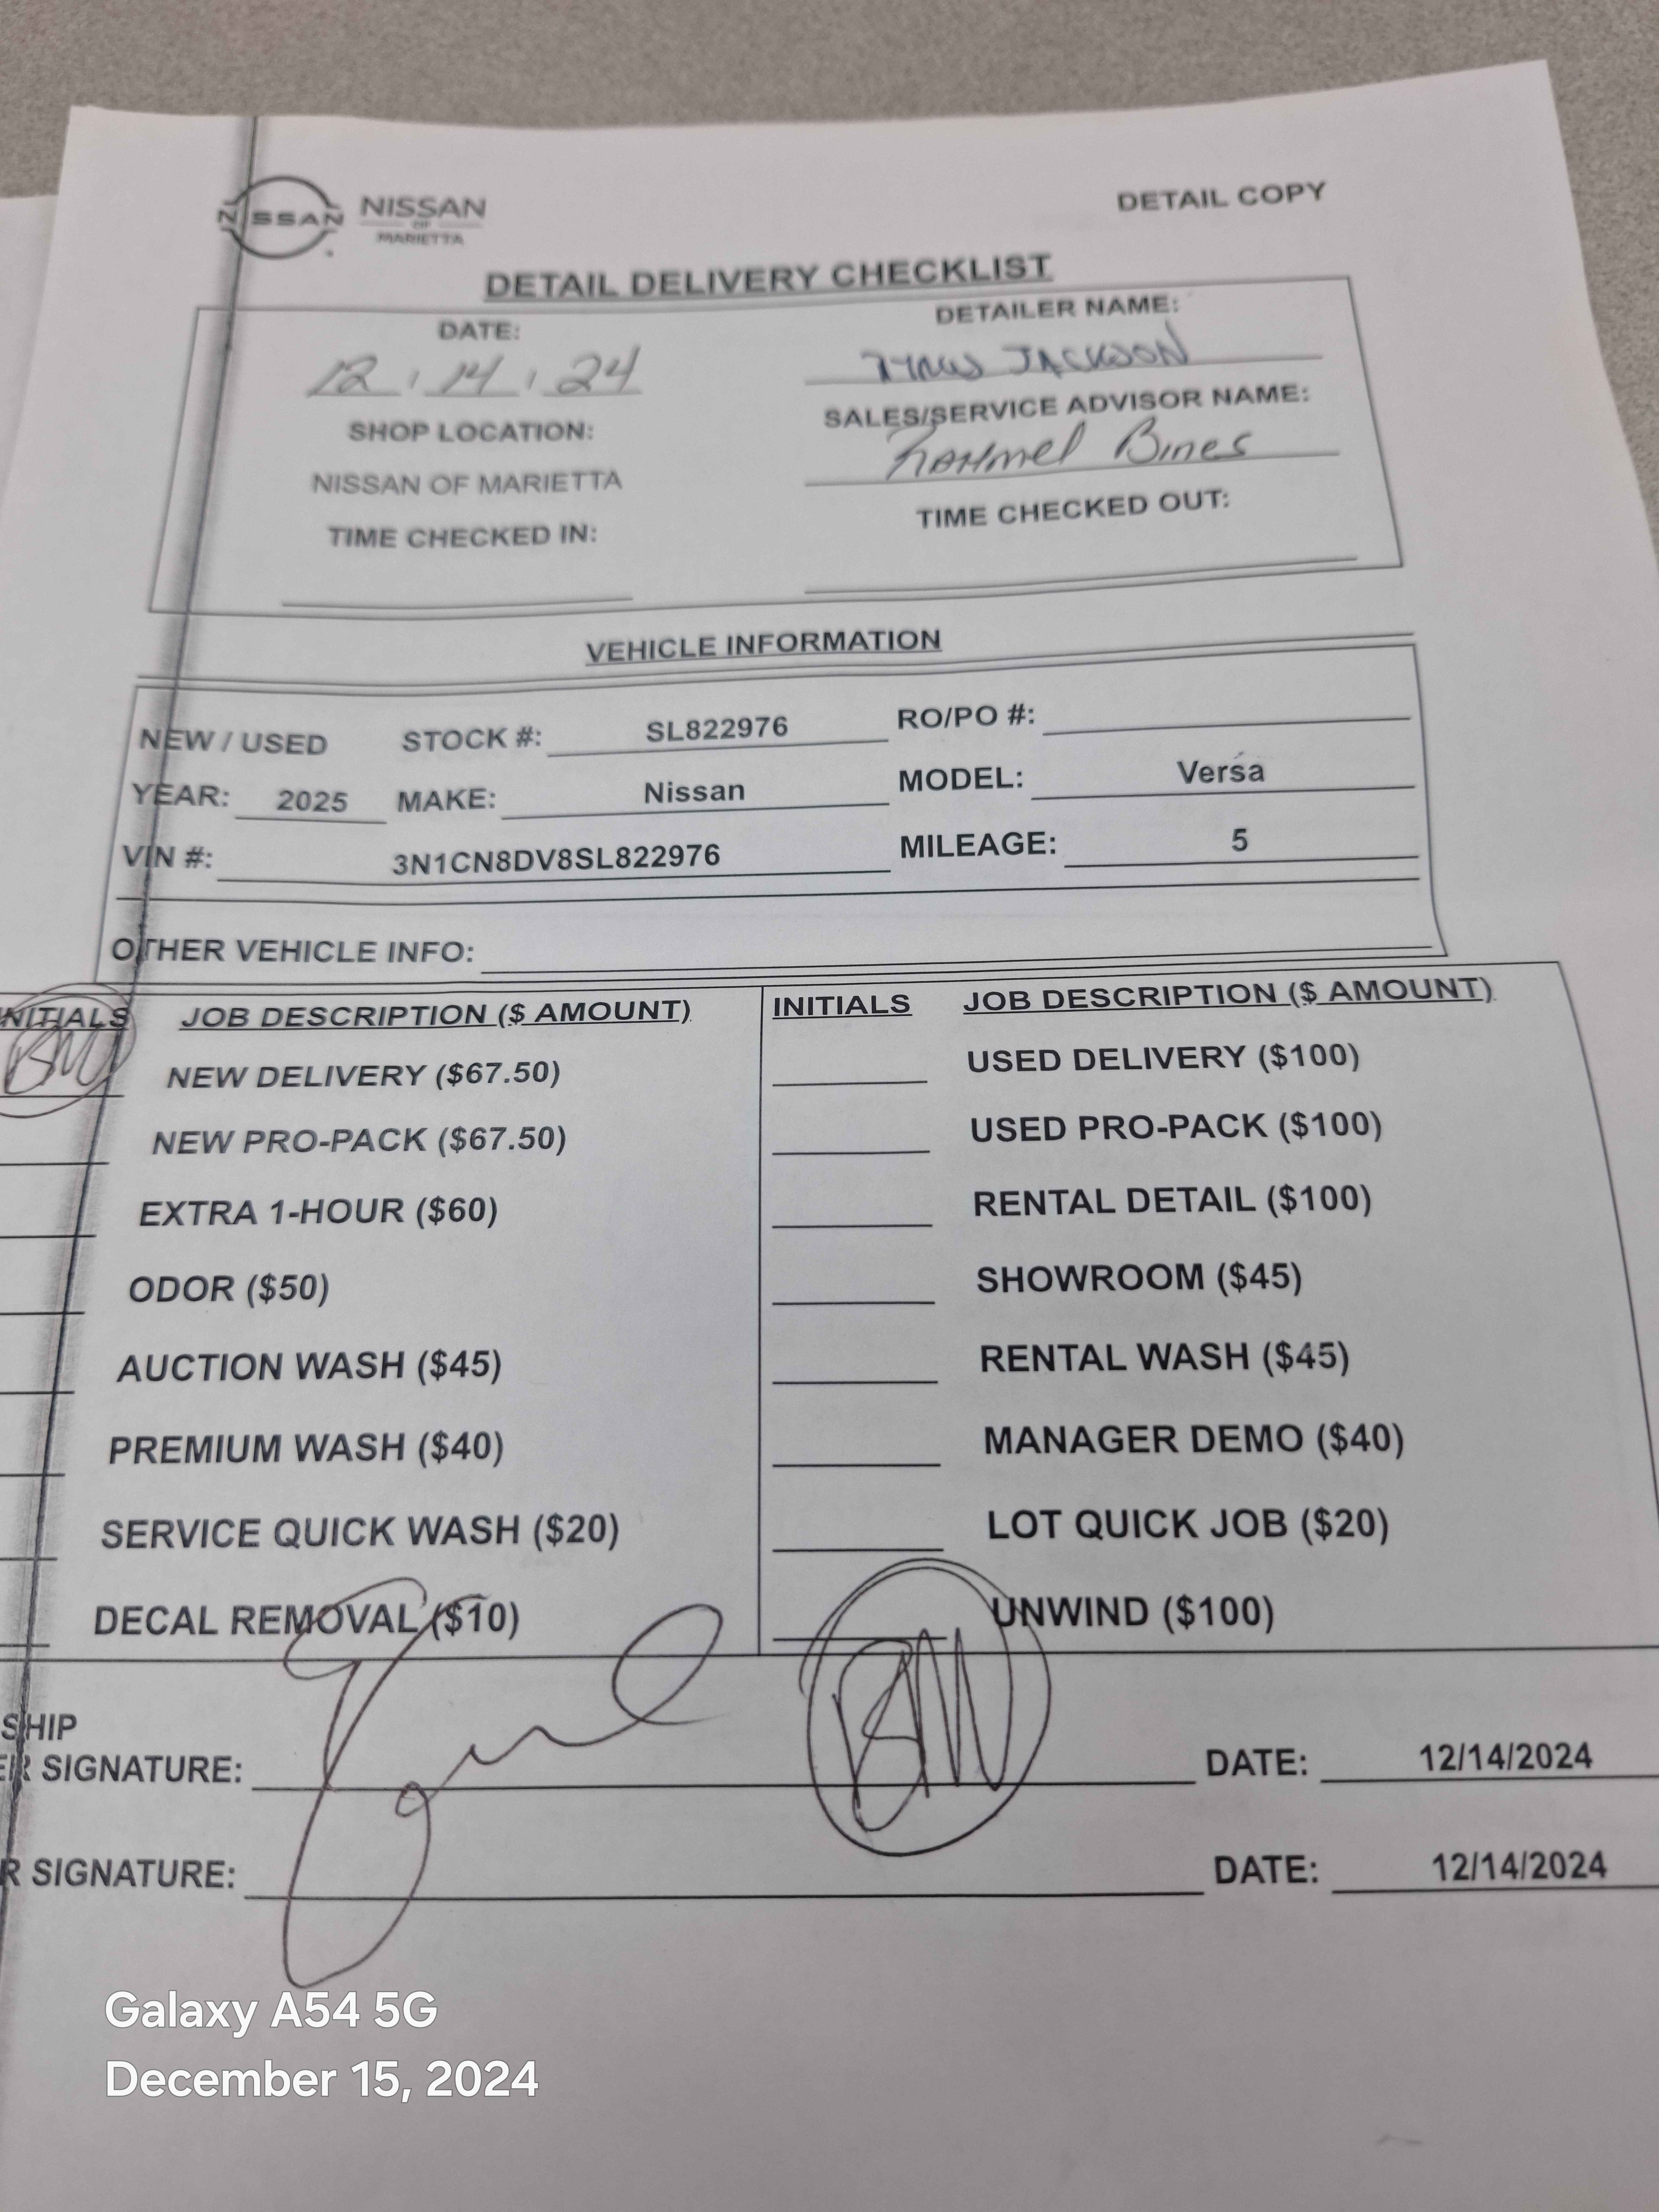 NISSAN NISSAN
OF
MARIETTA
DETAIL COPY
DETAIL DELIVERY CHECKLIST
DATE:
12 , 14 , 24
DETAILER NAME:
JACKSON
SHOP LOCATION:
NISSAN OF MARIETTA
SALES/SERVICE ADVISOR NAME:
Rahmel Bines
TIME CHECKED IN:
TIME CHECKED OUT:
VEHICLE INFORMATION
NEW / USED STOCK #: SL822976 RO/PO #:
YEAR: 2025 MAKE: Nissan MODEL: Versa
VIN #: 3N1CN8DV8SL822976 MILEAGE: 5
OTHER VEHICLE INFO:
INITIALS JOB DESCRIPTION ($ AMOUNT) INITIALS JOB DESCRIPTION ($ AMOUNT)
NEW DELIVERY ($67.50) USED DELIVERY ($100)
NEW PRO-PACK ($67.50) USED PRO-PACK ($100)
EXTRA 1-HOUR ($60) RENTAL DETAIL ($100)
ODOR ($50) SHOWROOM ($45)
AUCTION WASH ($45) RENTAL WASH ($45)
PREMIUM WASH ($40) MANAGER DEMO ($40)
SERVICE QUICK WASH ($20) LOT QUICK JOB ($20)
DECAL REMOVAL ($10) UNWIND ($100)
SHIP
ER SIGNATURE: DATE: 12/14/2024
R SIGNATURE: DATE: 12/14/2024
Galaxy A54 5G
December 15, 2024